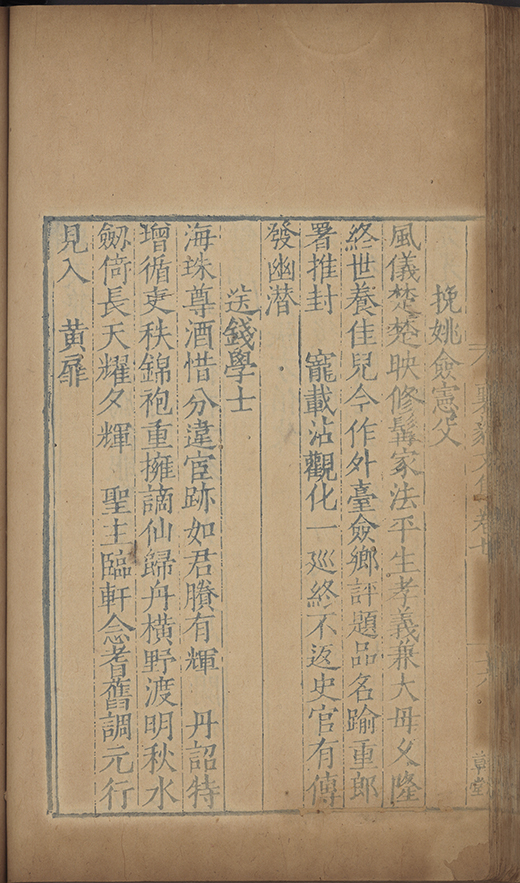 襄毅文集卷七
草堂
挽姚僉憲父
風儀楚楚映修髯家法平生孝義兼大母久隆
終世養佳兒今作外臺僉鄉評題品名踰重郎
署推封　寵載沾觀化一廵終不返史官有傳
發幽潜
送錢學士
海珠尊酒惜分違宦跡如君賸有輝　丹詔特
增循吏秩錦袍重擁謫仙歸舟橫野渡明秋水
劒倚長天耀夕輝　聖主臨軒念耆舊調元行
見入　黃扉